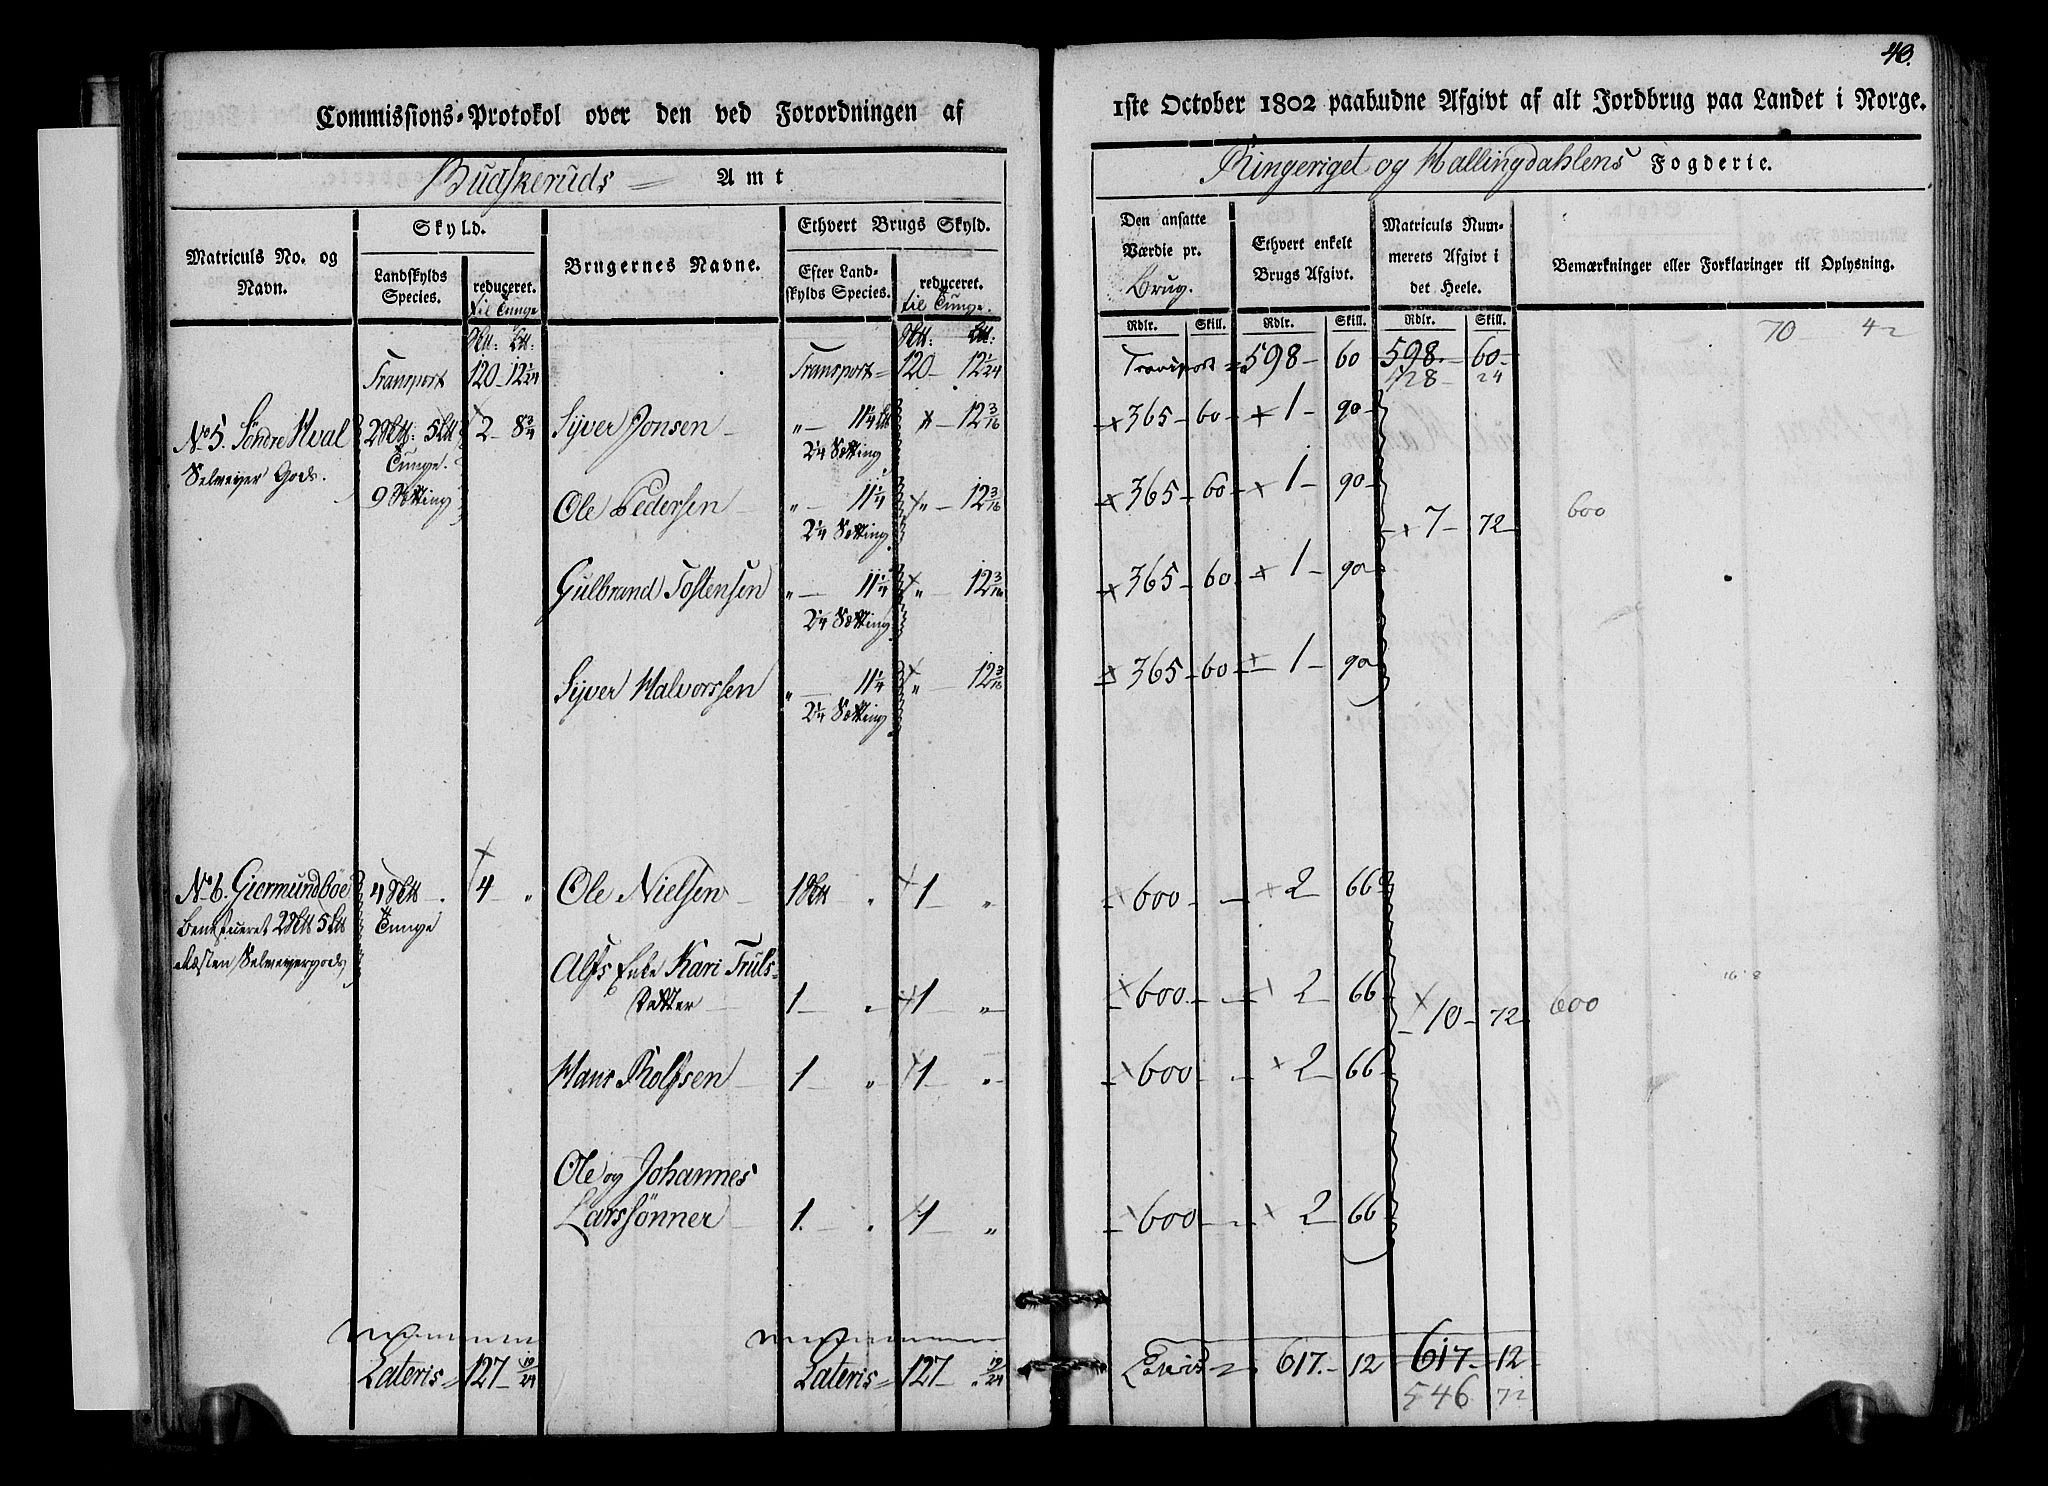 40.
Commissions-Protokol over den ved Forordningen af
1ste October 1802 paabudne Afgivt af alt Jordbrug paa Landet i Norge.
Budskeruds Amt
Ringeriget og Hallingdahlens Fogderie.
Matriculs No. og Navn.
Skyld.
Landskylds Species.
reduceret. til Tunge
Brugernes Navne.
Ethvert Brugs Skyld.
Efter Landskylds Species.
reduceret. til Tunge.
Den ansatte Værdie pr. Brug.
Ethvert enkelt Brugs Afgivt.
Matriculs Nummerets Afgivt i det Heele.
Bemærkninger eller Forklaringer til Oplysning.
Rdlr. Skill. Rdlr. Skill. Rdlr. Skill.
70 42
Transport 120 - 12 1/24 Transport = 120 - 12 1/24 Transport = 598 - 60 598 - 60
428 - 24
No 5. Søndre Hval 2 - 8 3/4 Syver Jonsen - " - 11 1/4 12 3/16 365 - 60 1 - 90
Selveyer Gods. Tunge. 2 1/4 Sætting
9 Sætting Ole Pedersen - " - 11 1/4 " - 12 3/16 365 - 60 1 - 90
2 1/4 Sætting 7 - 72 600
Gulbrand Tostensen " - 11 1/4 " - 12 3/16 365 - 60 1 - 90
2 1/4 Sætting
Syver Halvorssen " - 11 1/4 " - 12 3/16 365 - 60 1 - 90
2 1/4 Sætting
No 6. Giermundboe 4 4 - " Ole Nielsen - 1 " 1 " 600 - 2 66
Beneficeret Tunge
Resten Selveyergods Alfs Enke Kari Truls-
Datter 1 - " 1 " 600 - 2 66 10 - 72 600 16 8
Hans Rolfsen 1 - " 1 " 600 - 2 66
Ole og Johannes
Larssønner 1. " 1 " 600 - 2 66
Lateris = 127 - 19/24 Lateris = 127 - " 19/24 617. - 12 617 - 12
546 72